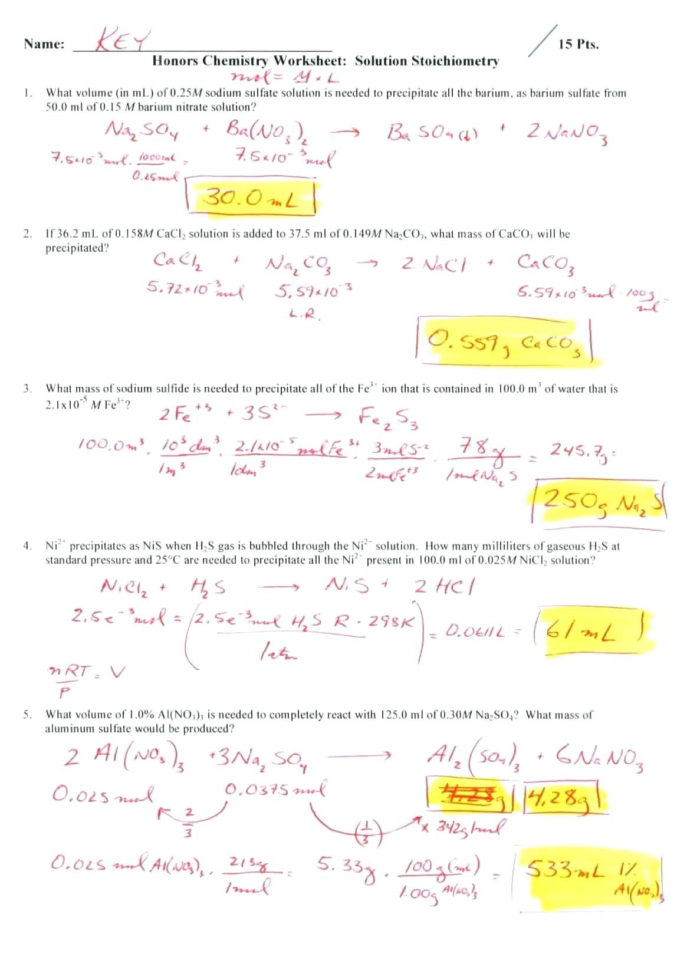 Name: KEY / 15 Pts.
Honors Chemistry Worksheet: Solution Stoichiometry
mol = M · L
1. What volume (in mL) of 0.25M sodium sulfate solution is needed to precipitate all the barium, as barium sulfate from
50.0 ml of 0.15 M barium nitrate solution?
Na₂SO₄ + Ba(NO₃)₂ → BaSO₄(s) + 2 NaNO₃
7.5x10⁻³ mol · 1000 ml / 0.25 mol = 7.5x10⁻³ mol
30.0 mL
2. If 36.2 mL of 0.158M CaCl₂ solution is added to 37.5 ml of 0.149M Na₂CO₃, what mass of CaCO₃ will be
precipitated?
CaCl₂ + Na₂CO₃ → 2 NaCl + CaCO₃
5.72x10⁻³ mol 5.59x10⁻³ 5.59x10⁻³ mol · 100g / mol =
L.R.
0.559g CaCO₃
3. What mass of sodium sulfide is needed to precipitate all of the Fe³⁺ ion that is contained in 100.0 m³ of water that is
2.1x10⁻⁵ M Fe³⁺?
2Fe⁺³ + 3S²⁻ → Fe₂S₃
100.0m³ · 10³dm³ / 1m³ · 2.1x10⁻⁵ mol Fe³⁺ / 1dm³ · 3mol S⁻² / 2mol Fe⁺³ · 78g / 1mol Na₂S = 245.7g =
250g Na₂S
4. Ni²⁺ precipitates as NiS when H₂S gas is bubbled through the Ni²⁺ solution. How many milliliters of gaseous H₂S at
standard pressure and 25°C are needed to precipitate all the Ni²⁺ present in 100.0 ml of 0.025M NiCl₂ solution?
NiCl₂ + H₂S → NiS + 2 HCl
2.5e⁻³mol = (2.5e⁻³mol H₂S R · 298K / 1atm) = 0.0611L = 61 mL
nRT / P = V
5. What volume of 1.0% Al(NO₃)₃ is needed to completely react with 125.0 ml of 0.30M Na₂SO₄? What mass of
aluminum sulfate would be produced?
2 Al(NO₃)₃ + 3Na₂SO₄ → Al₂(SO₄)₃ + 6NaNO₃
0.025 mol 0.0375 mol 4.28g 4.28g
2/3 (1/3) x 342g/mol
0.025 mol Al(NO₃)₃ · 213g / 1mol = 5.33g · 100g (mL) / 1.00g Al(NO₃)₃ = 533 mL 1% Al(NO₃)₃